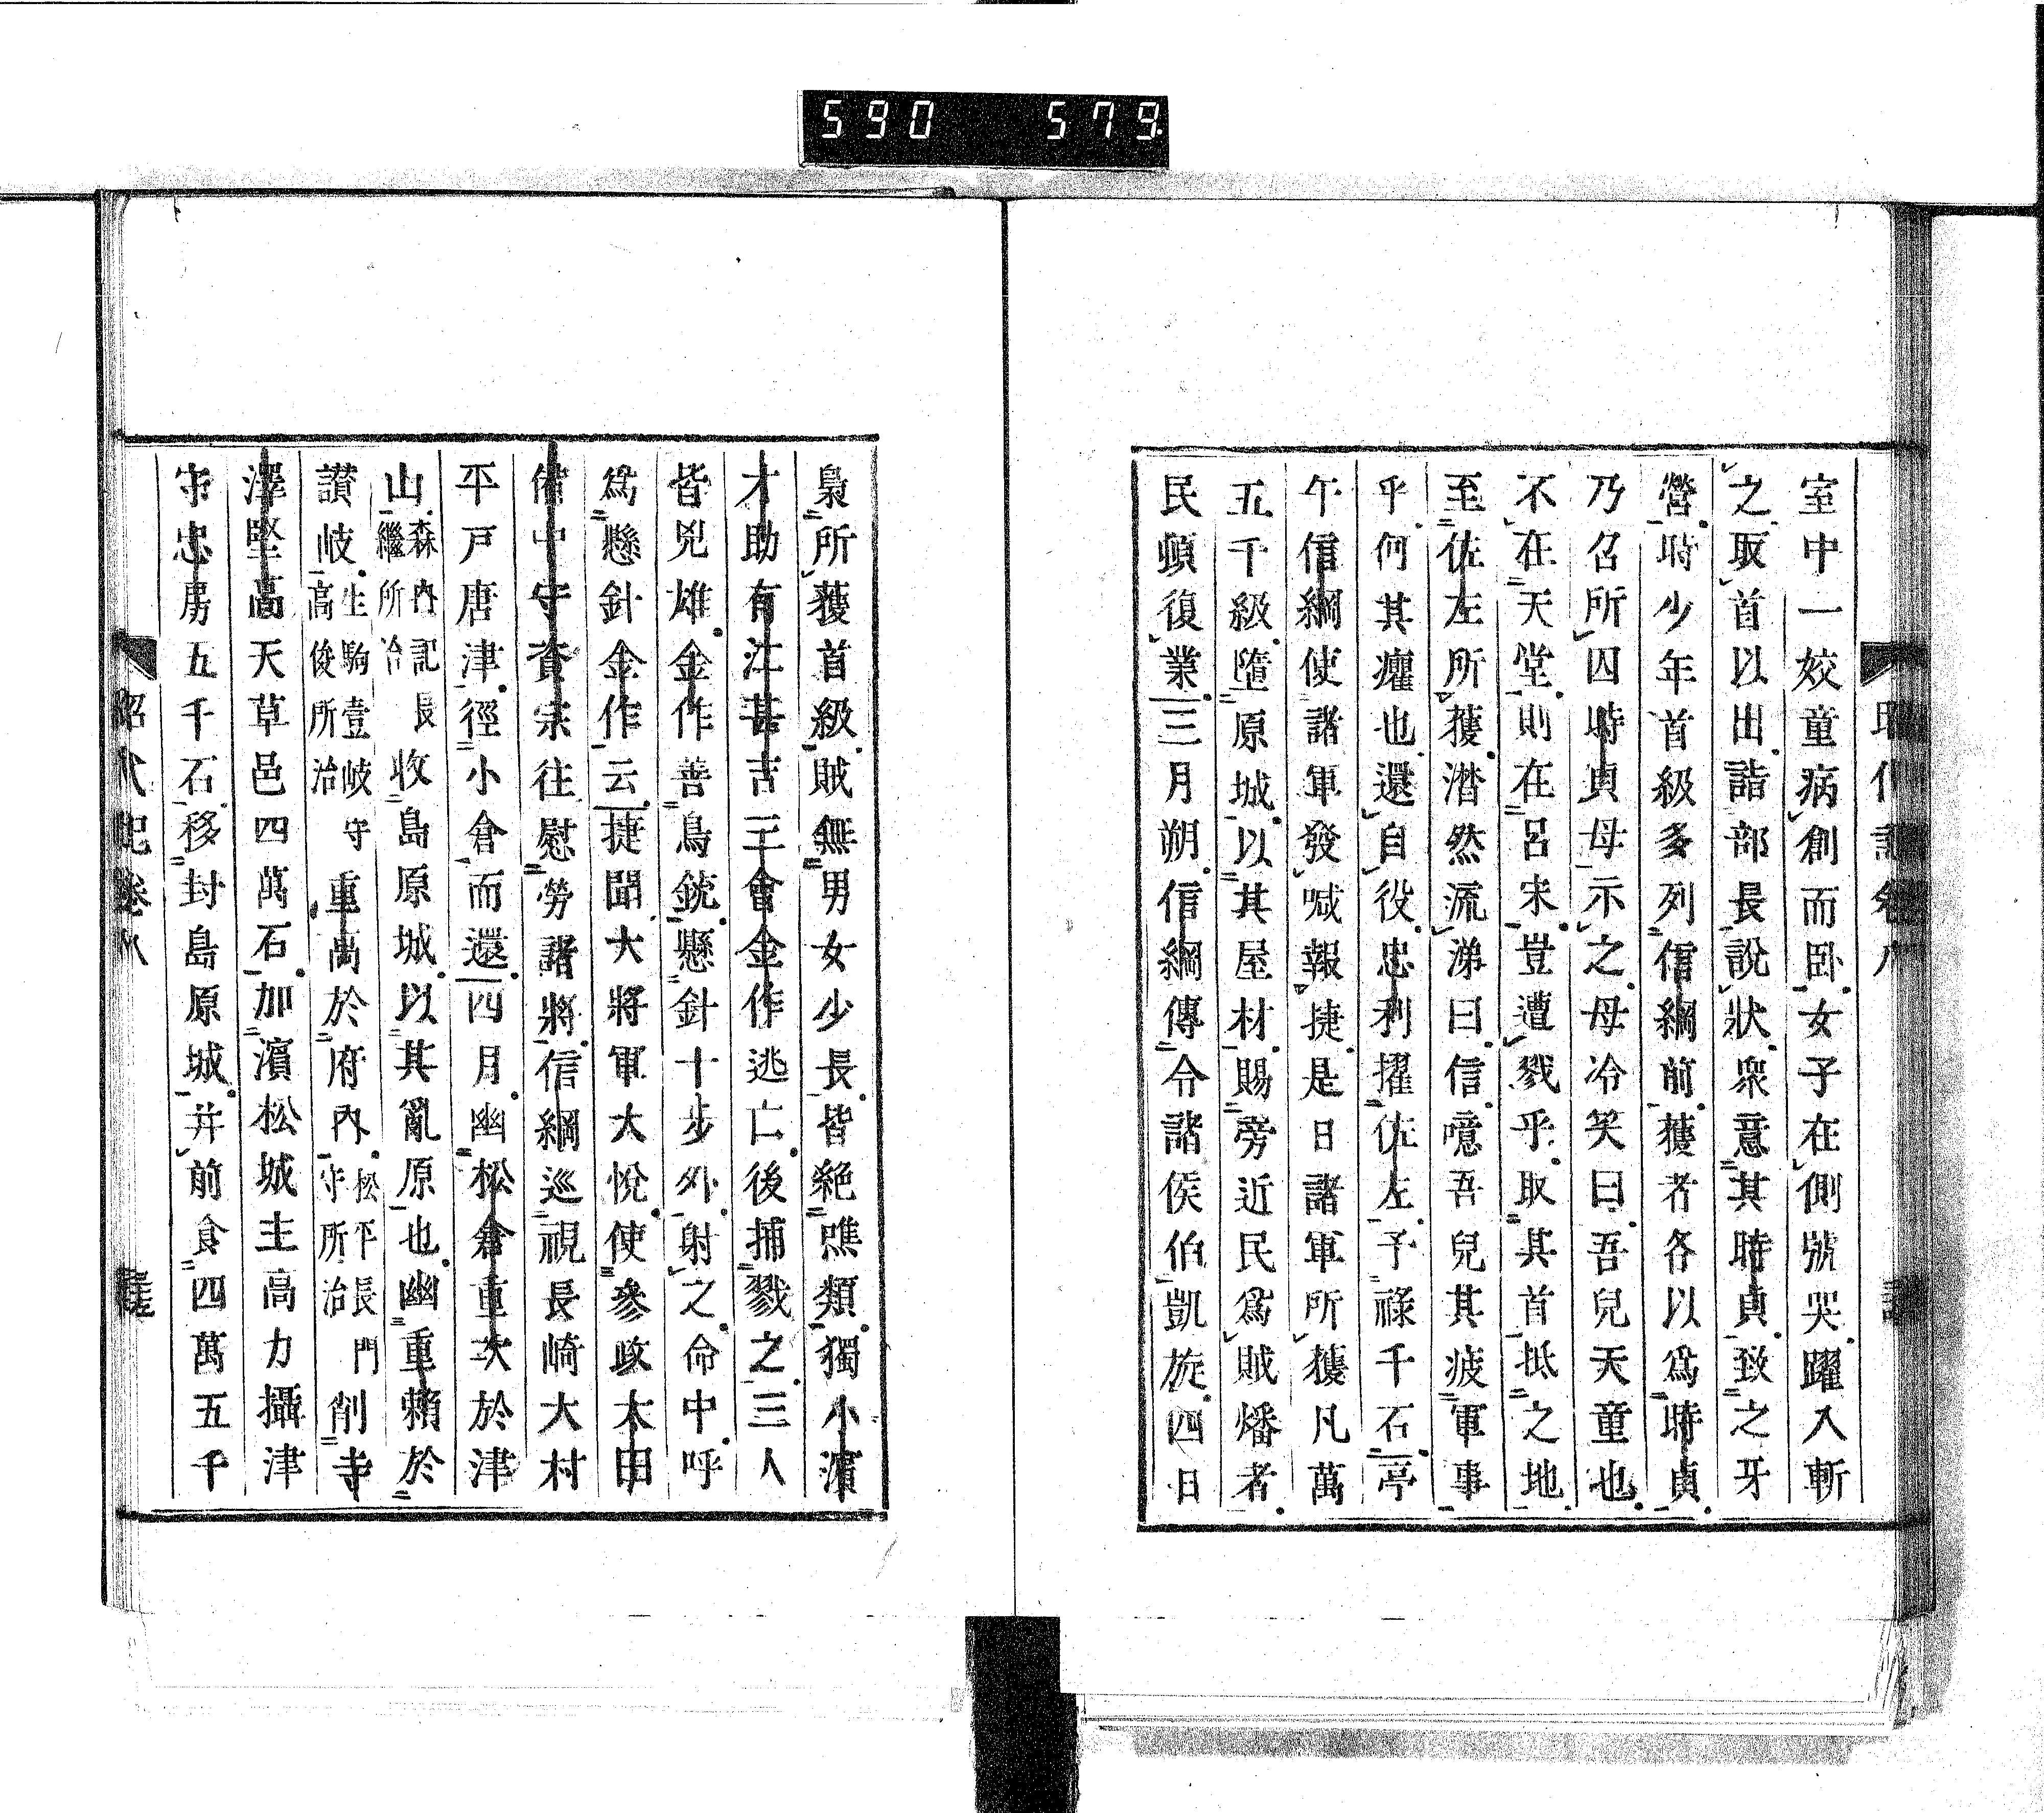 590 579
室中一姣童病創而臥女子在側號哭躍入斬
之取首以出詣部長說狀衆意其時貞致之牙
營時少年首級多列信綱前獲者各以爲時貞
乃召所囚時貞母示之母冷笑曰吾兒天童也
不在天堂則在呂宋豈遭戮乎取其首抵之地
至佐左所獲潸然流涕曰信噫吾兒其疲軍事
乎何其癯也還自役忠利擢佐左予祿千石亭
午信綱使諸軍發喊報捷是日諸軍所獲凡萬
五千級墮原城以其屋材賜旁近民爲賊燔者
民頓復業三月朔信綱傳令諸侯伯凱旋四日
梟所獲首級賊無男女少長皆絕噍類獨小濱
才助有江甚吉三會金作逃亡後捕戮之三人
皆兇雄金作善鳥銃懸針十步外射之命中呼
爲懸針金作云捷聞大將軍大悅使參政太田
備中守資宗往慰勞諸將信綱巡視長崎大村
平戸唐津徑小倉而還四月幽松倉重次於津
山森內記長繼所治收島原城以其亂原也幽重賴於
讃岐生駒壹岐守高俊所治重高於府內松平長門守所治削寺
澤堅高天草邑四萬石加濱松城主高力攝津
守忠房五千石移封島原城并前食四萬五千
昭代記卷八